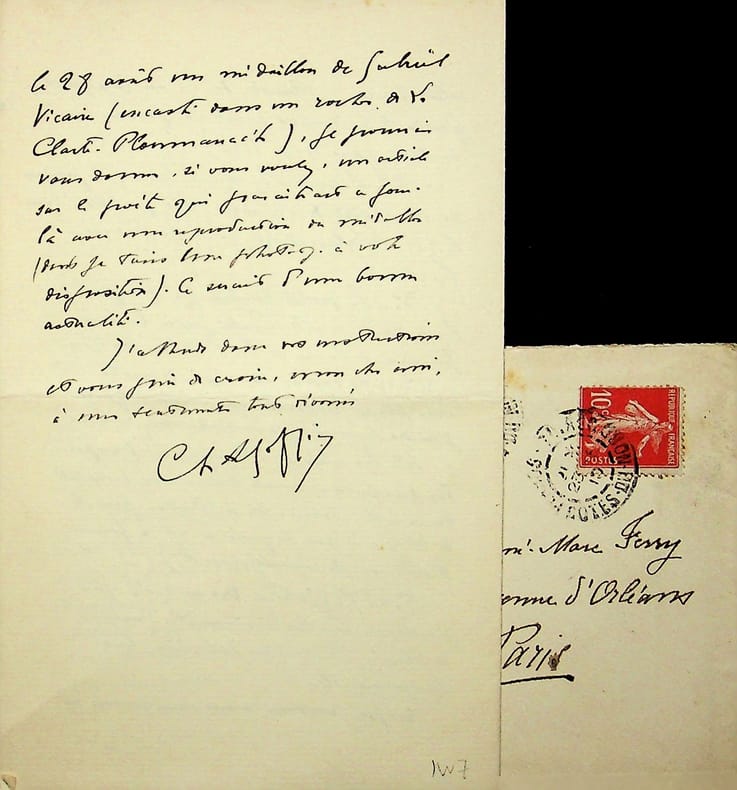 le 28 août un médaillon de Gabriel
Vicaire (encastré dans un rocher de La
Clarté-Ploumanac'h), je pourrais
vous donner, si vous voulez, un article
sur le poète qui paraîtrait ce jour-
là avec une reproduction du médaillon
(dont je tiens une photog. à votre
disposition). Ce serait d'une bonne
actualité.
J'attends donc vos instructions
et vous prie de croire, mon cher ami,
à mes sentiments tout dévoués
10c
REPUBLIQUE FRANÇAISE
POSTES
COTES-DU-NORD
Mr. Marc Ferry
d'Orléans
Paris
1W7